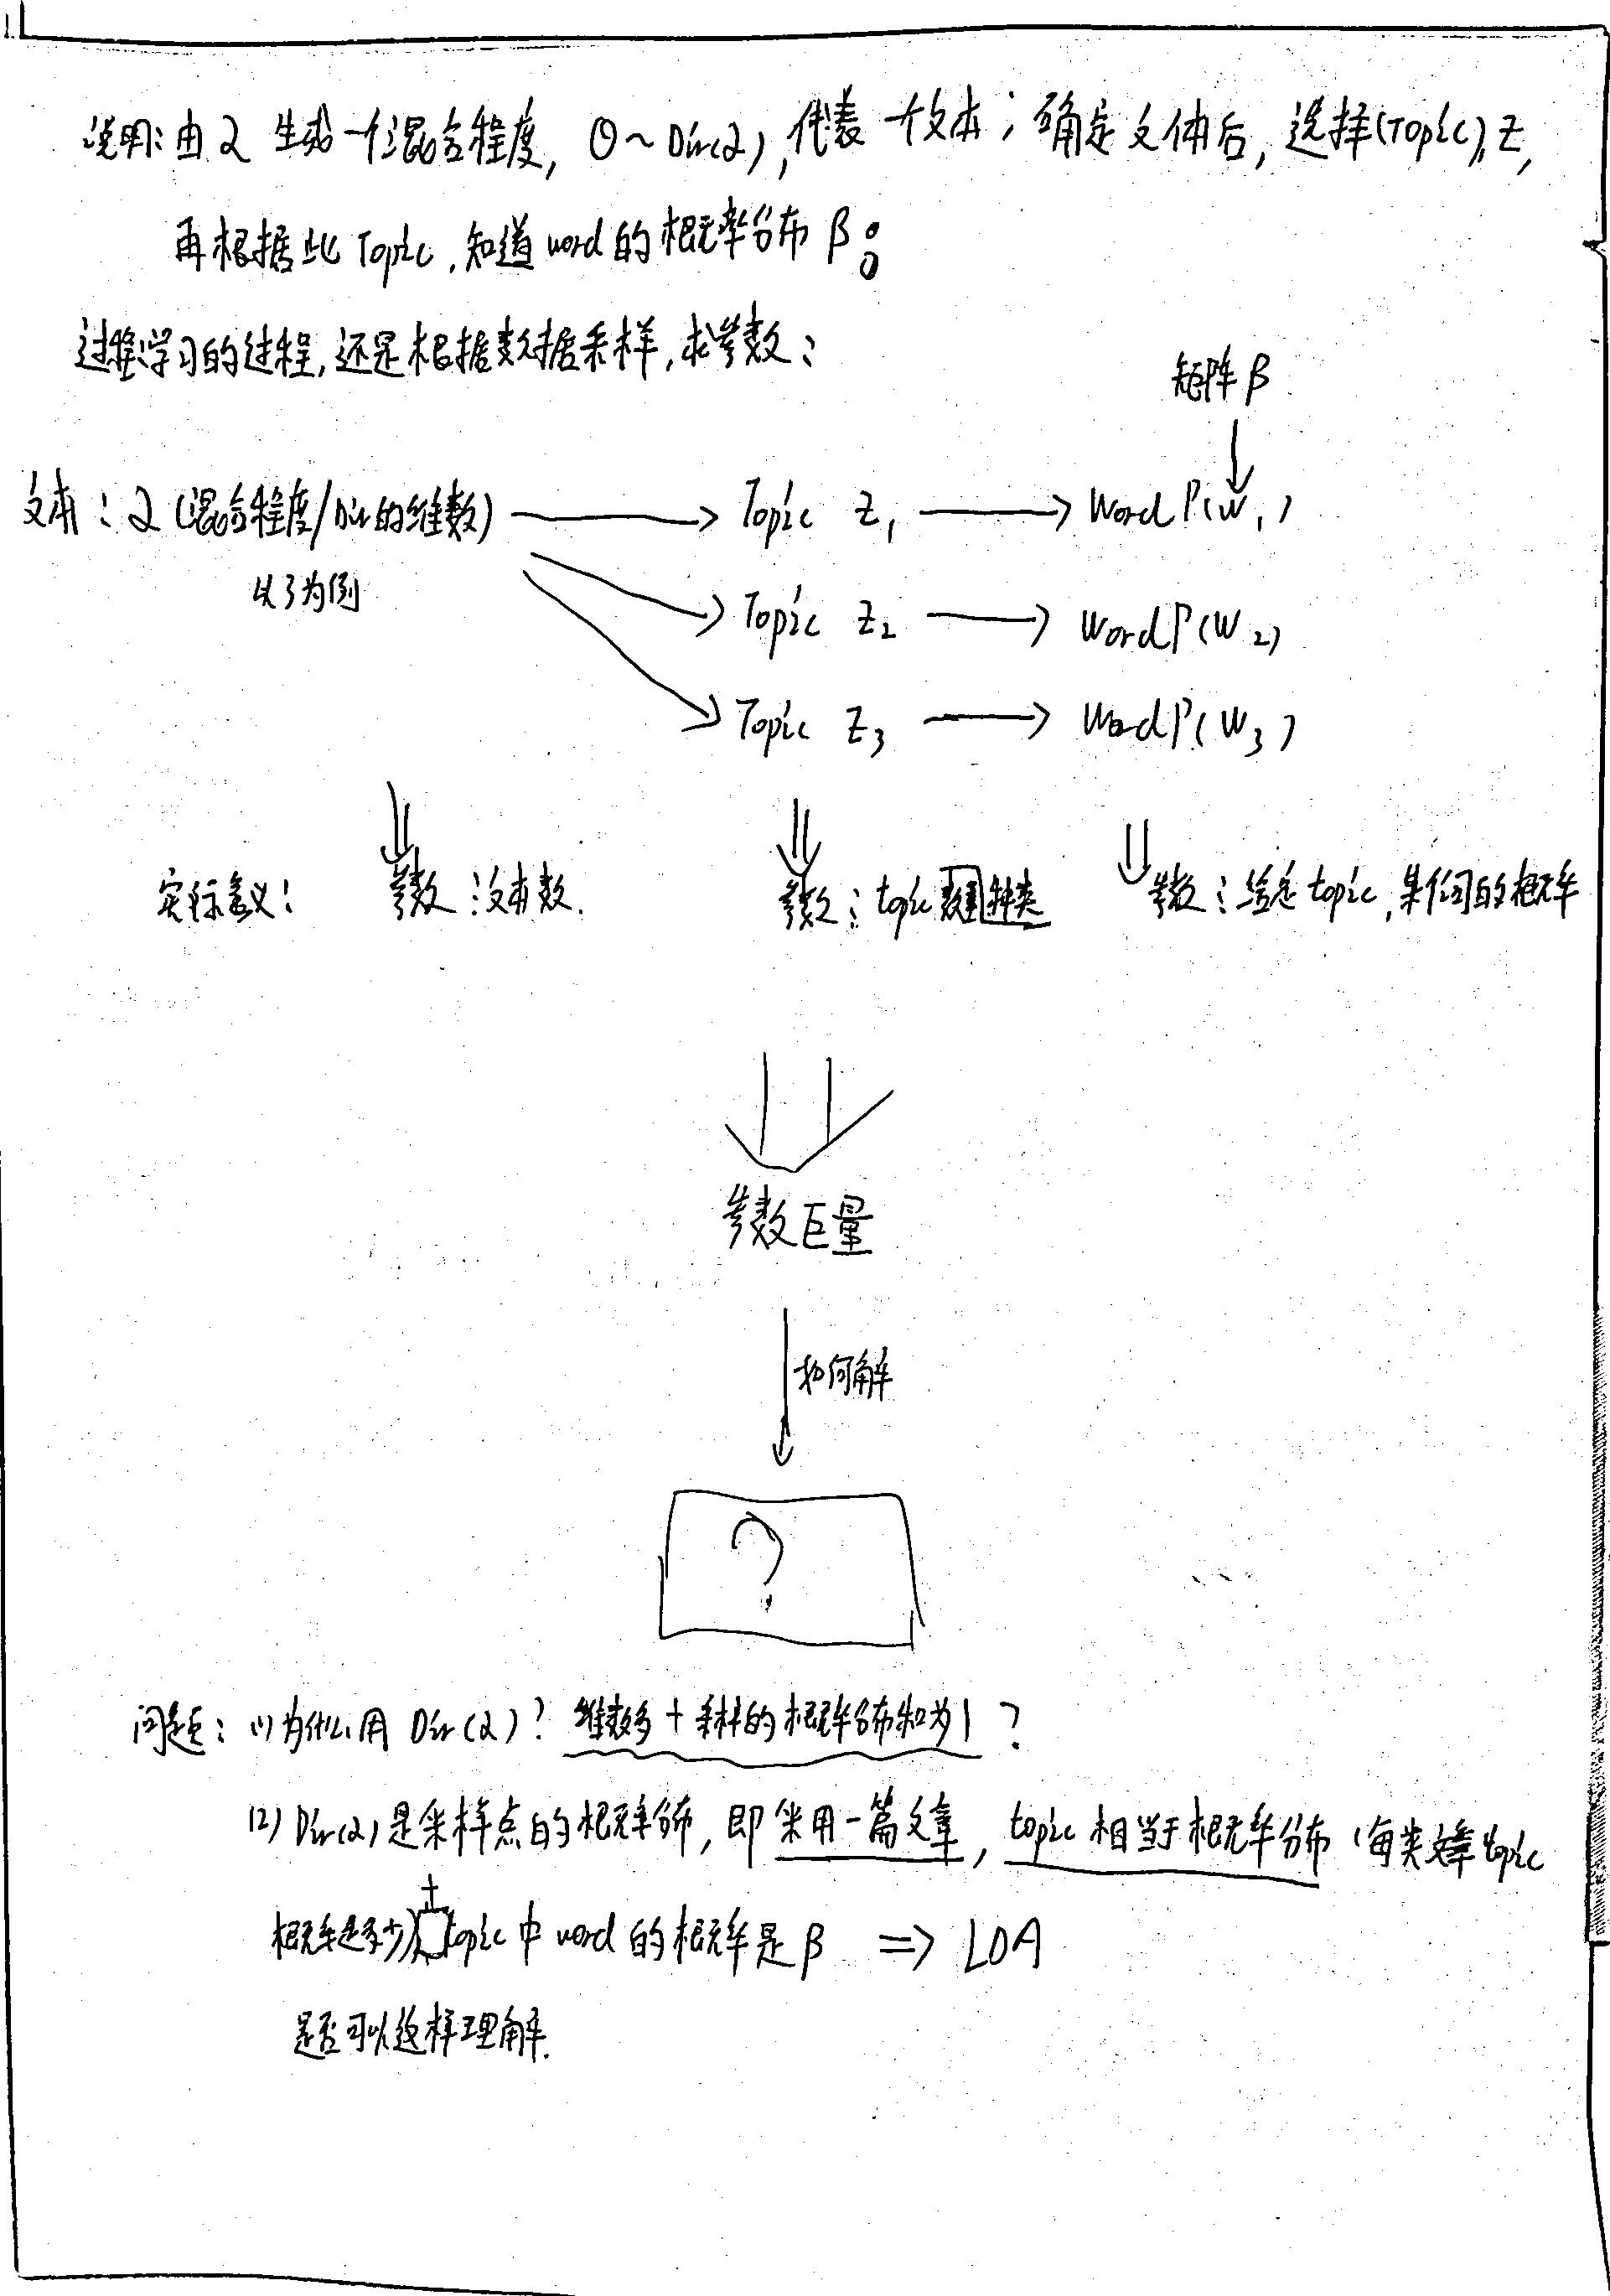 说明:由α 生成一个混合程度, θ~Dir(α),代表一个文本;确定文体后,选择(Topic),z,
再根据此 Topic,知道word的概率分布 β。
过程学习的过程,还是根据数据采样,求参数:
矩阵β
文本:α(混合程度/Dir的维数) → Topic z₁ → Word P(w₁)
以3为例
Topic z₂ → Word P(w₂)
Topic z₃ → Word P(w₃)
实际意义: 参数:文本数. 参数:topic 种类 参数:给定topic,某个词的概率
参数巨量
如何解
?
问题:(1)为什么用 Dir(α)? 维数多+采样的概率分布和为1?
(2) Dir(α)是采样点的概率分布,即采用一篇文章,topic相当于概率分布(每类文章topic
概率是多少)+topic中word的概率是β ⇒ LDA
是否可以这样理解.